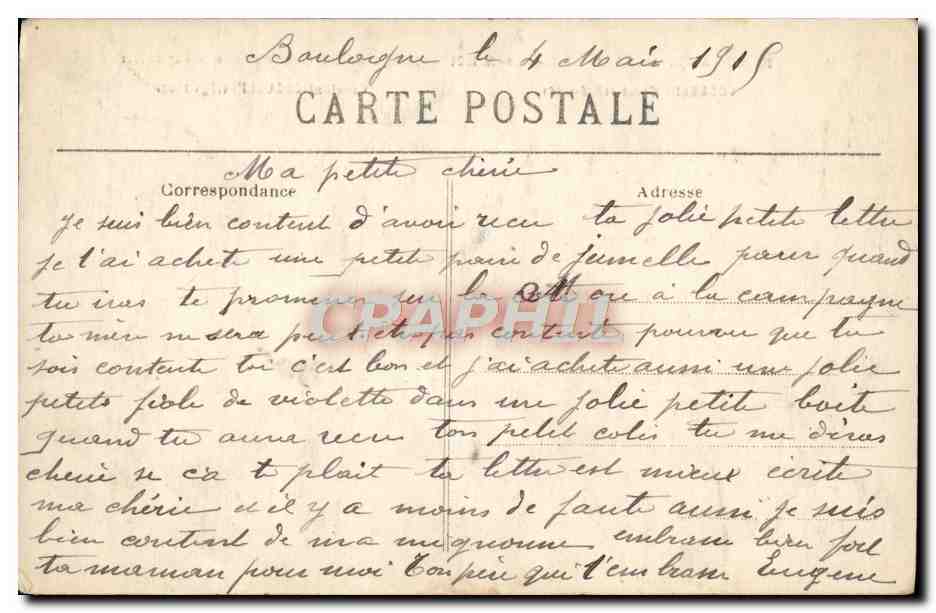 Boulogne le 4 Mai 1915
CARTE POSTALE
Ma petite chérie
Correspondance
Adresse
Je suis bien content d'avoir recu ta jolie petite lettre
je t'ai achete une petite paire de jumelle pour quand
tu iras te promener sur la cote ou à la campagne
ta mère ne sera peut etre pas contente pourvu que tu
sois contente toi c'est bon et j'ai achete aussi une jolie
petite fiole de violette dans une jolie petite boite
quand tu aura recu ton petit colis tu me diras
cherie se ca t plait ta lettre est mieux écrite
ma chérie et il y a moins de faute aussi je suis
bien content de ma mignonne embrasse bien fort
ta maman pour moi Ton père qui t'embrasse Eugene
CPAPHIL